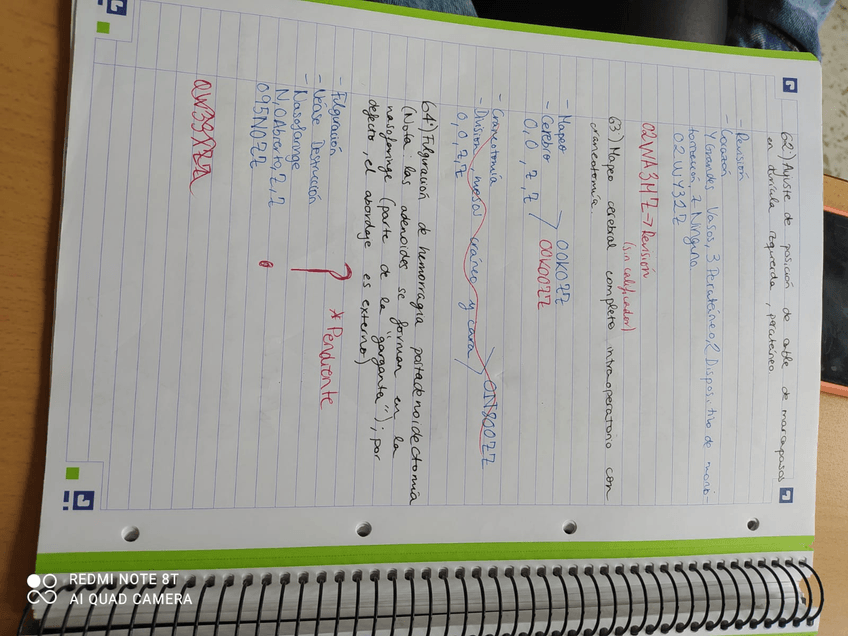 62º) Ajuste de posición de cable de marcapasos
en aurícula izquierda, percutáneo.
- Revisión
- Corazón
Y Grandes Vasos, 3 Percutáneo, 2 Dispositivo de moni-
torización, Z Ninguno
02WY32Z
02WA3MZ → Revisión
(sin calificador)
63º) Mapeo cerebral completo intraoperatorio con
craneotomía.
- Mapeo
- Cerebro
0, 0, Z, Z
00K07ZZ
00K00ZZ
- Craneotomía
- División, huesos cráneo y cara
0, 0, Z, Z
0N800ZZ
64º) Fulguración de hemorragia postadenoidectomía
(Nota: las adenoides se forman en la
nasofaringe (parte de la "garganta"); por
defecto, el abordaje es externo)
- Fulguración
- Véase Destrucción
- Nasofaringe
N, 0 Abierto, Z, Z
095N0ZZ
? * Pendiente
0W3
REDMI NOTE 8T
AI QUAD CAMERA